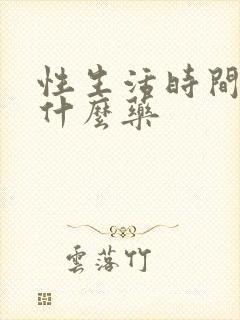 性生活時間
什麼藥
雲落竹